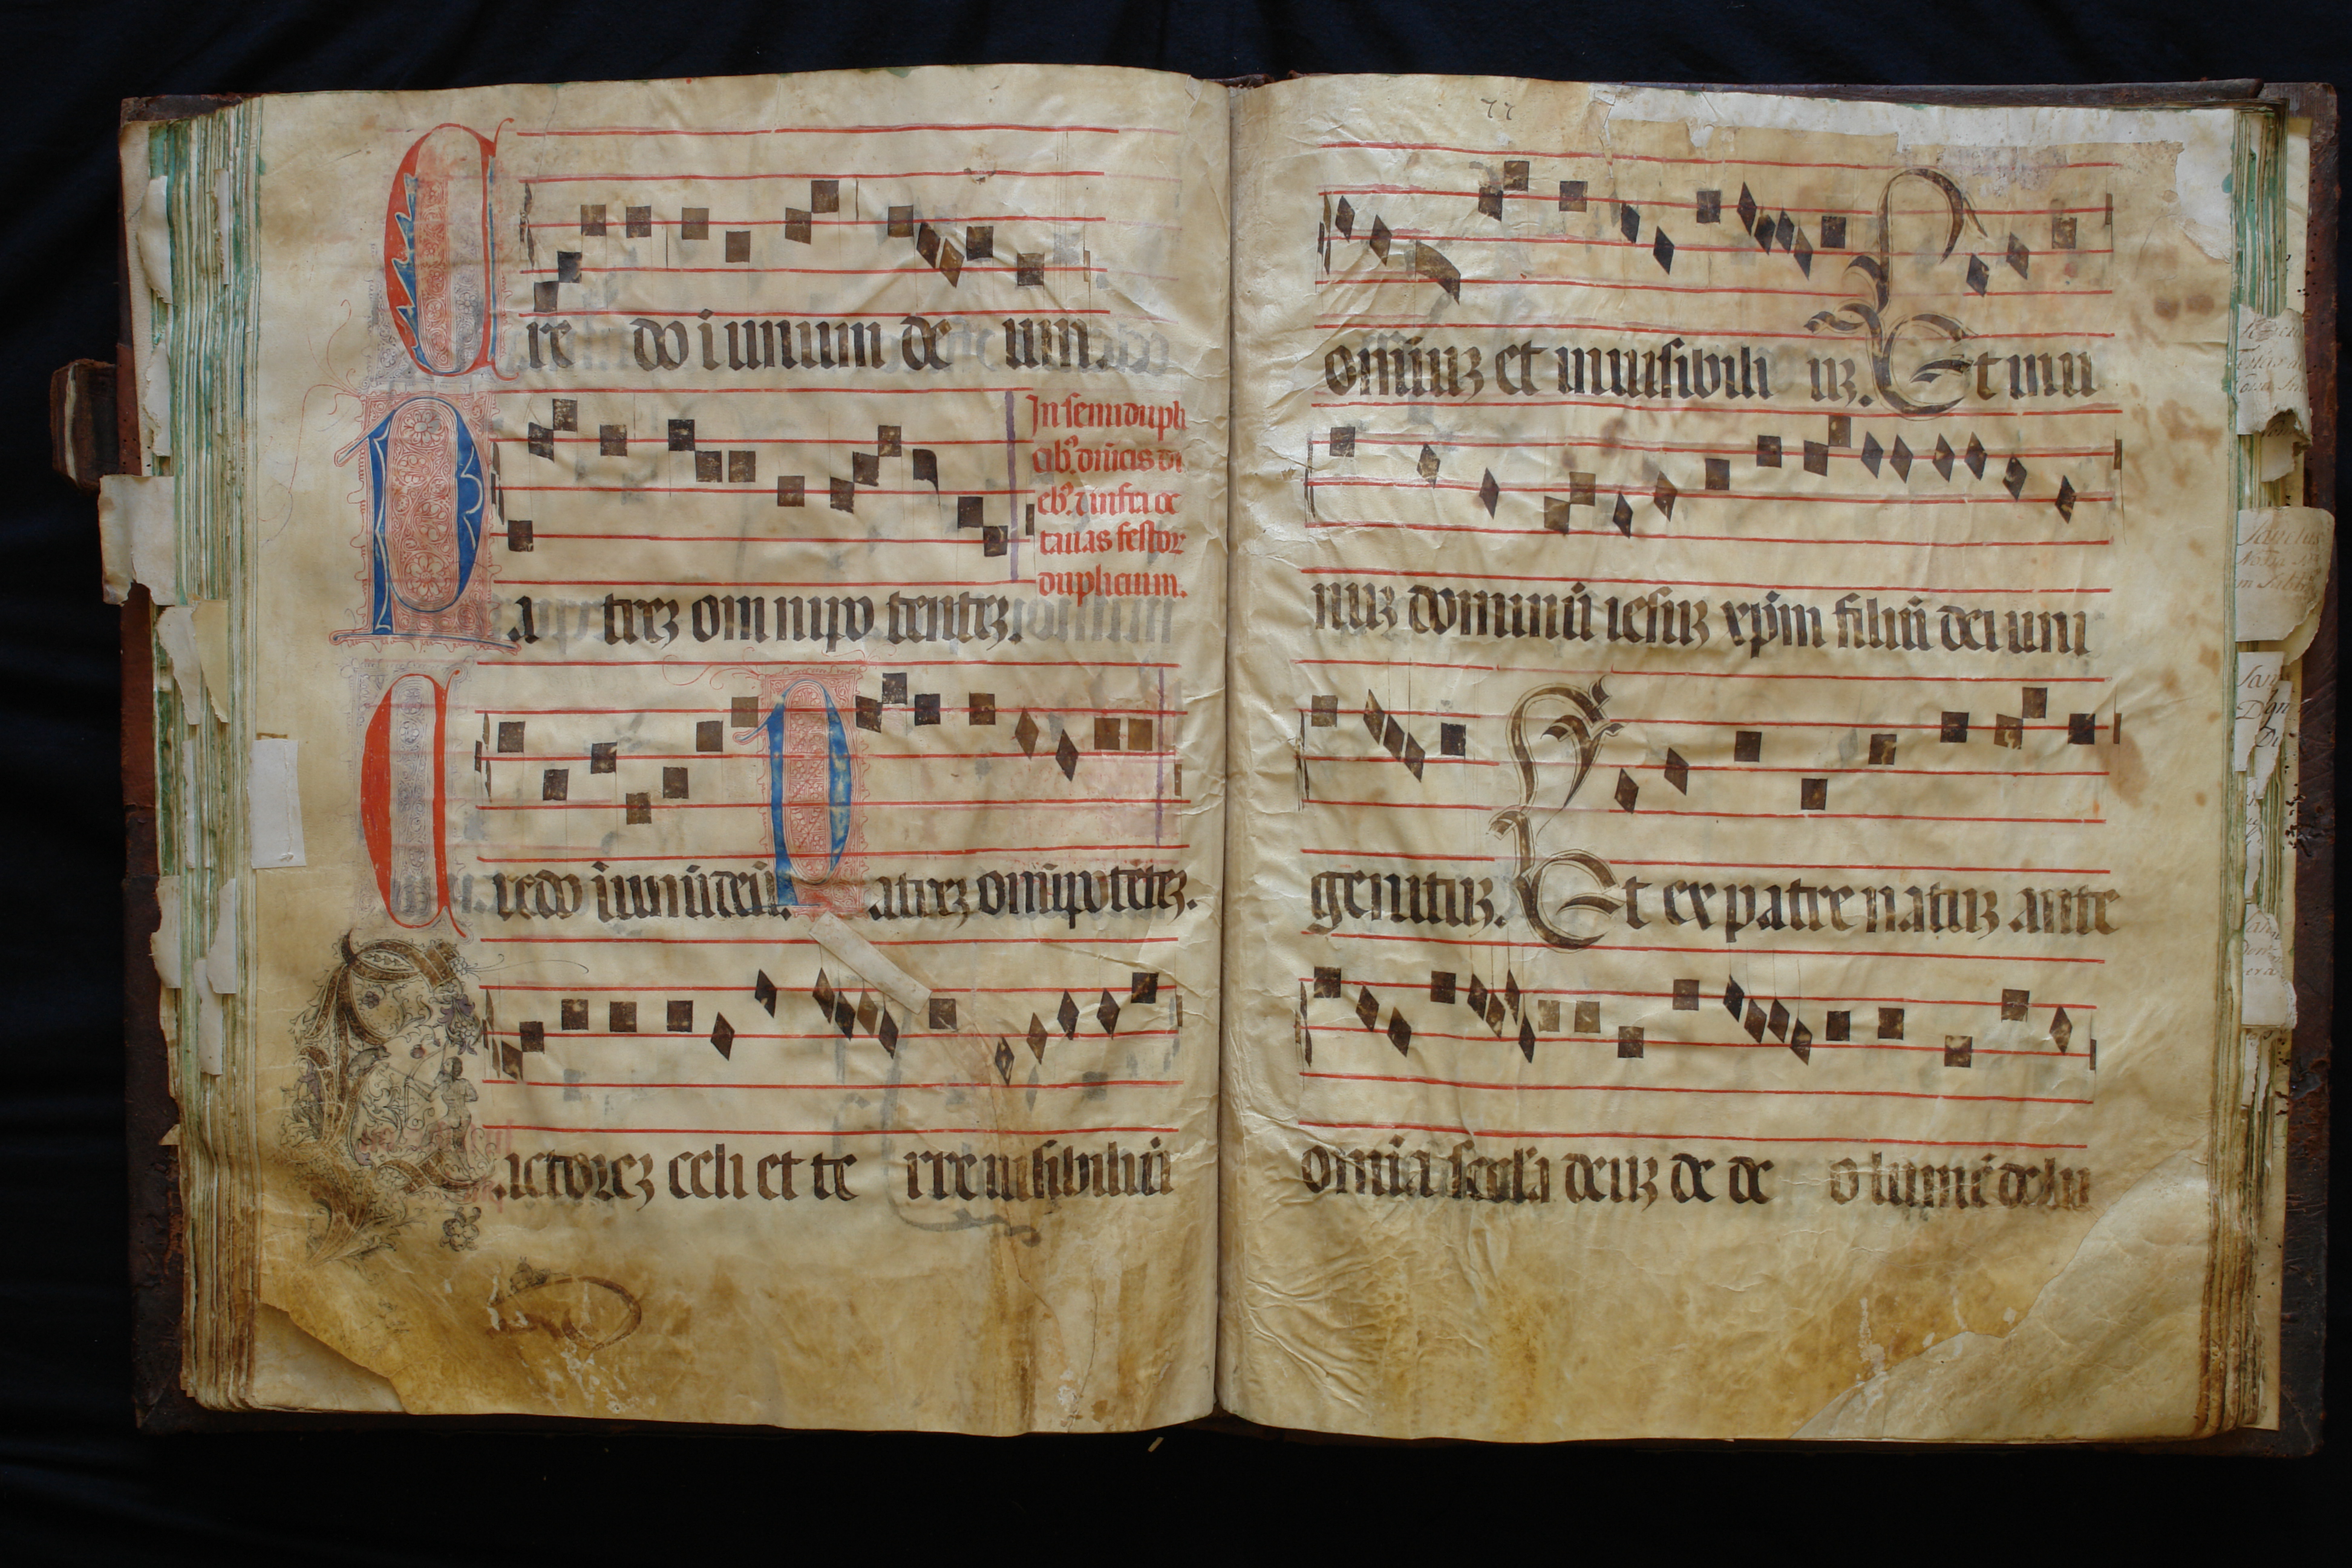 Cre do i unum de um.
In semidupli
cib9 dn̄icis di
eb9 ⁊ infra oc
tauas festor
duplicium.
Pa treꝫ om nipo tenteꝫ.
Credo i unū deū. Patreꝫ om̄ipotēteꝫ.
Factoreꝫ celi et te rre uisibiliū
77
om̄iuꝫ et inuisibili uꝫ. Et in u
nuꝫ dominū iesuꝫ xp̄m filiū dei uni
genituꝫ. Et ex patre natuꝫ ante
om̄ia secl'a deuꝫ de de o lumē de lu
Sanctus